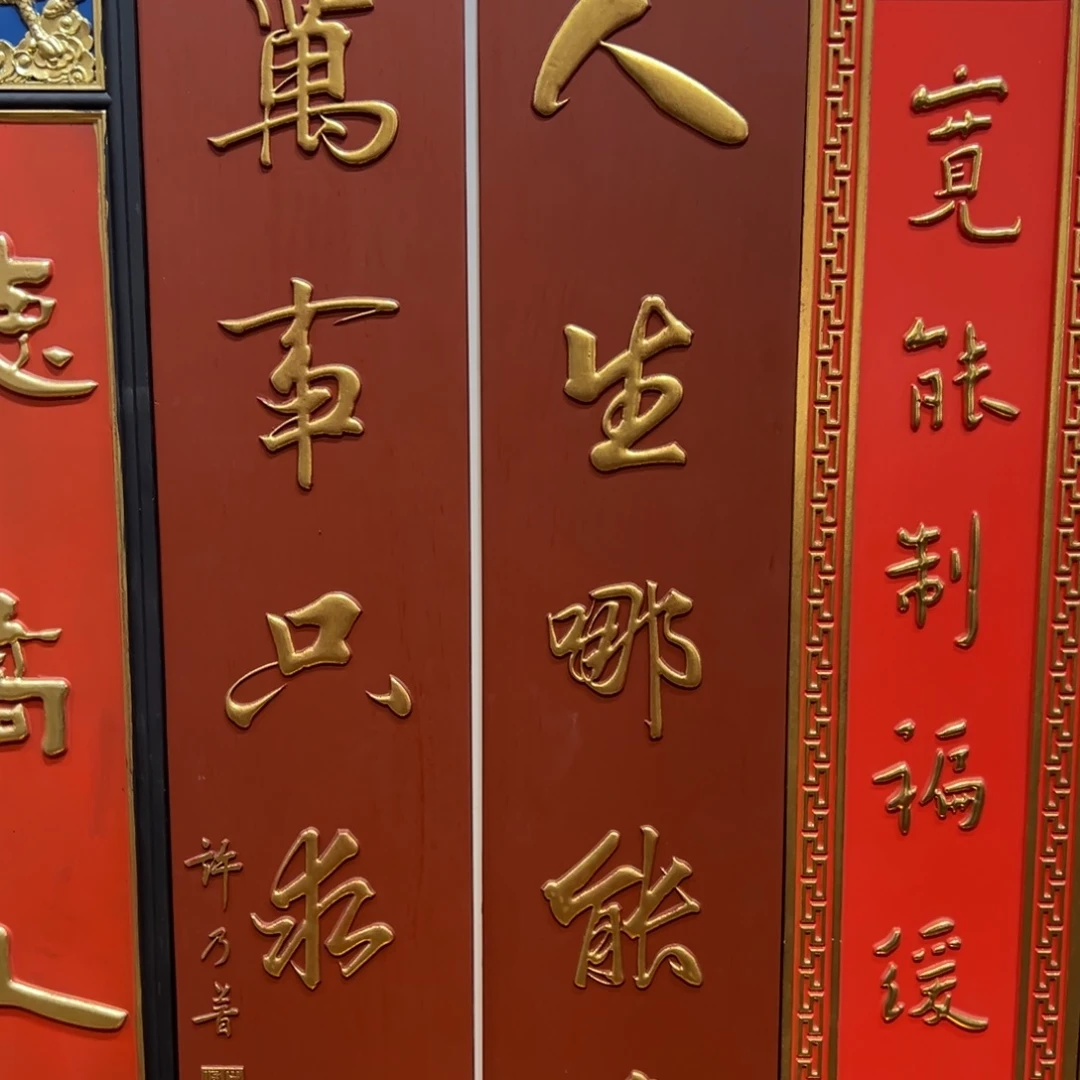 寬能制福緩
人生哪能
萬事只求
許乃普
人